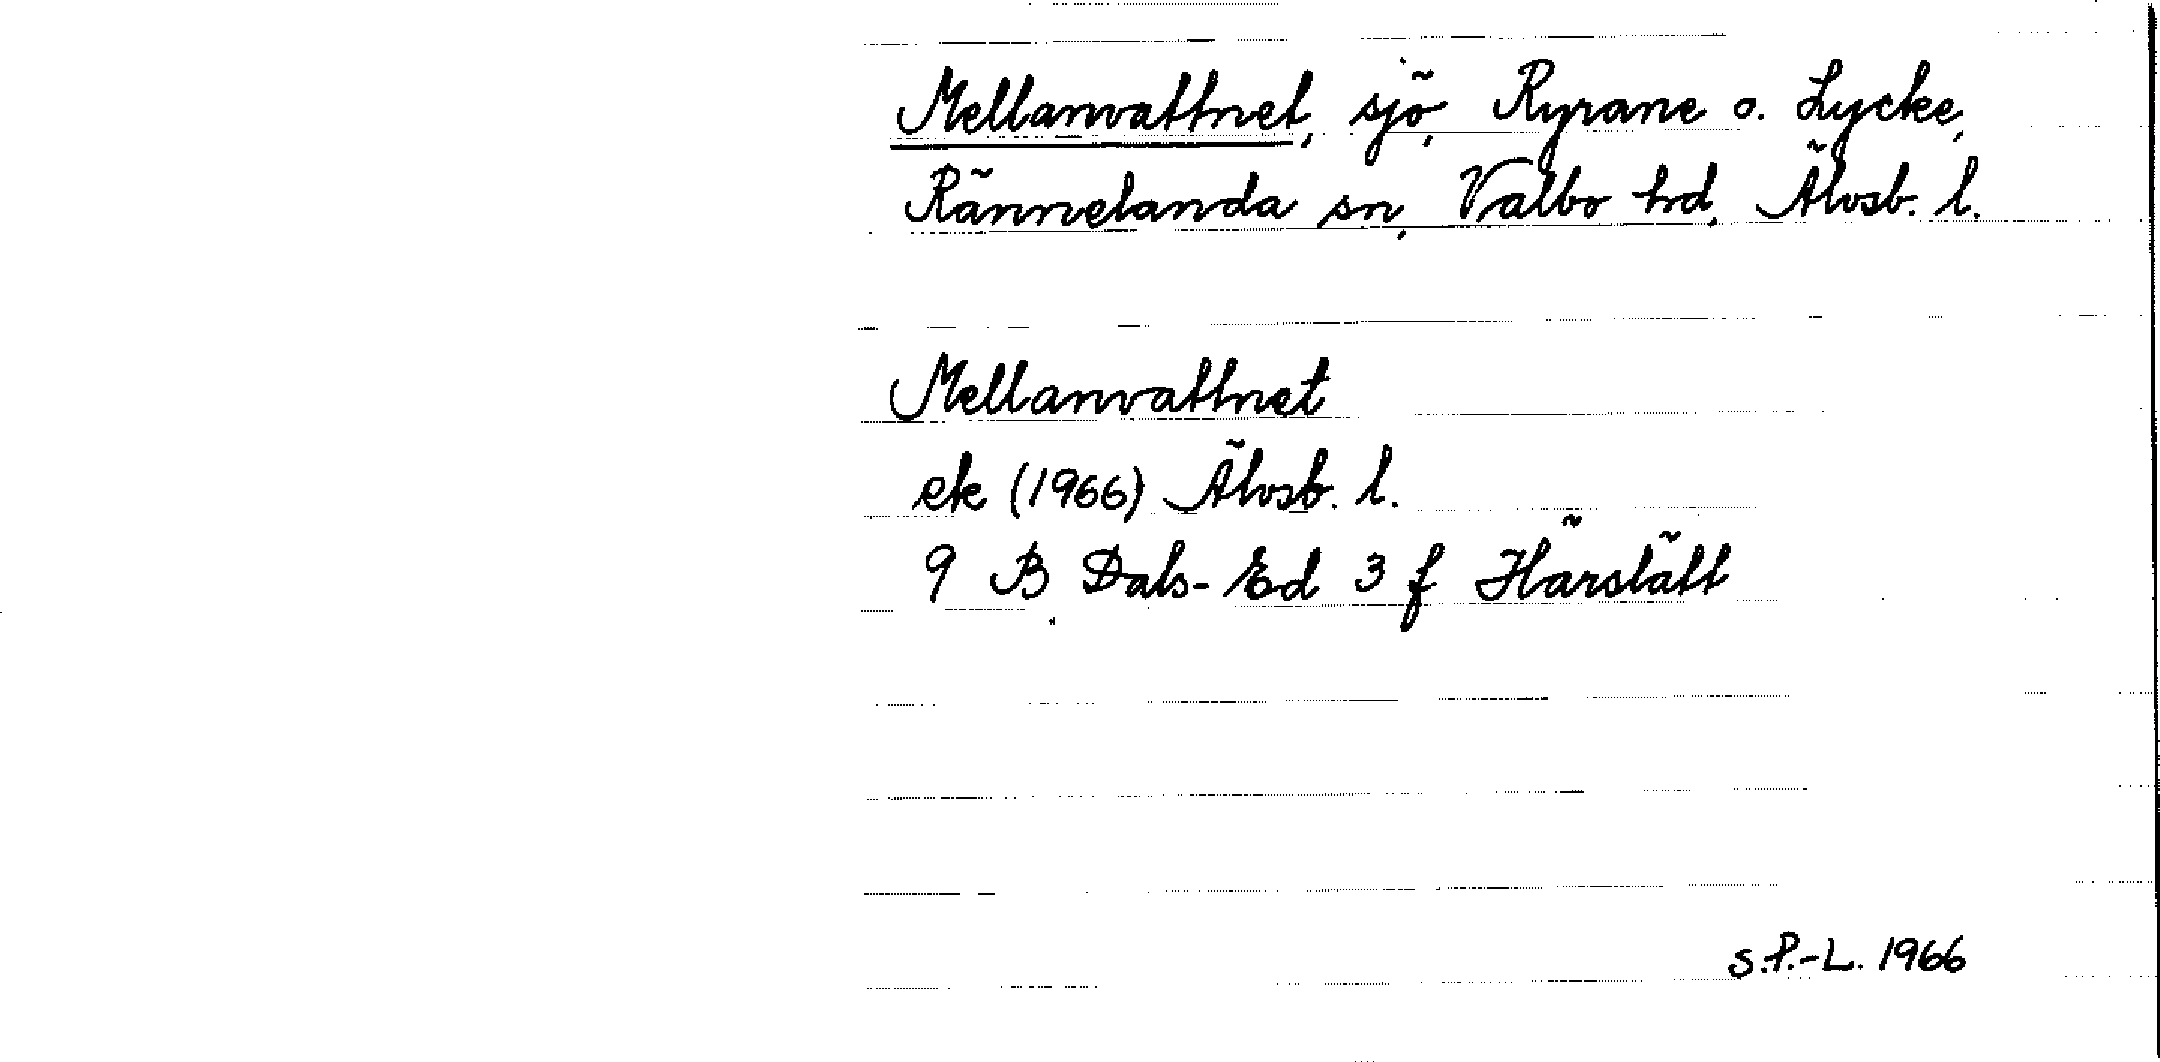 Mellanvattnet, sjö, Ryrane o. Lycke,
Rännelanda sn, Valbo hd, Älvsb. l.
Mellanvattnet
ek (1966) Älvsb. l.
9 B Dals-Ed 3 f Härslätt
S.P.-L. 1966